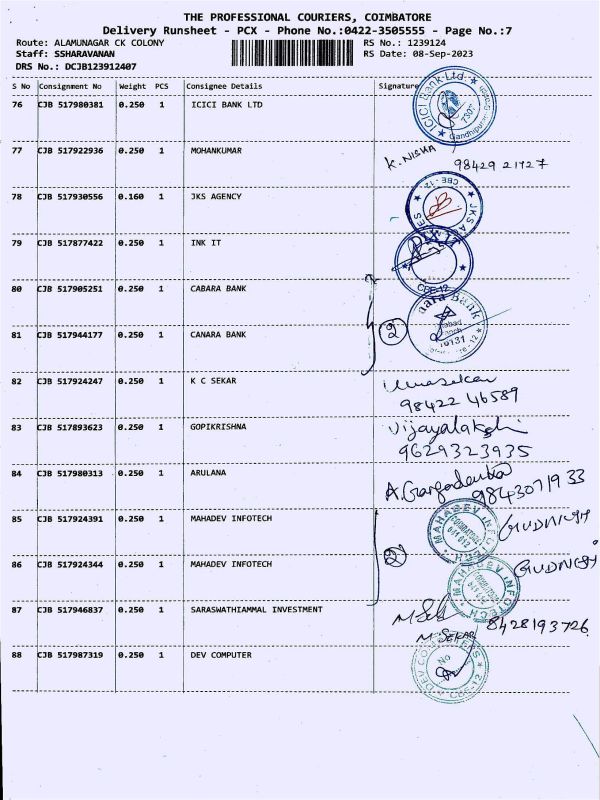 THE PROFESSIONAL COURIERS, COIMBATORE
Delivery Runsheet - PCX - Phone No.:0422-3505555 - Page No.:7
Route: ALAMUNAGAR CK COLONY RS No.: 1239124
Staff: SSHARAVANAN RS Date: 08-Sep-2023
DRS No.: DCJB123912407
S No Consignment No Weight PCS Consignee Details Signature
76 CJB 517980381 0.250 1 ICICI BANK LTD ICICI Bank Ltd.
77 CJB 517922936 0.250 1 MOHANKUMAR K. NISHA 98429 21727
78 CJB 517930556 0.160 1 JKS AGENCY CBE-12 JKS
79 CJB 517877422 0.250 1 INK IT CBE-12
80 CJB 517905251 0.250 1 CABARA BANK
81 CJB 517944177 0.250 1 CANARA BANK 2 Bank
82 CJB 517924247 0.250 1 K C SEKAR Umasekar
98422 46589
83 CJB 517893623 0.250 1 GOPIKRISHNA Vijayalakshi
9629323935
84 CJB 517980313 0.250 1 ARULANA 9843071933
85 CJB 517924391 0.250 1 MAHADEV INFOTECH MAHADEV INFOTECH
86 CJB 517924344 0.250 1 MAHADEV INFOTECH 2 MAHADEV INFOTECH
87 CJB 517946837 0.250 1 SARASWATHIAMMAL INVESTMENT 8428193726
M. SEKAR
88 CJB 517987319 0.250 1 DEV COMPUTER DEV COMPUTERS CBE-12